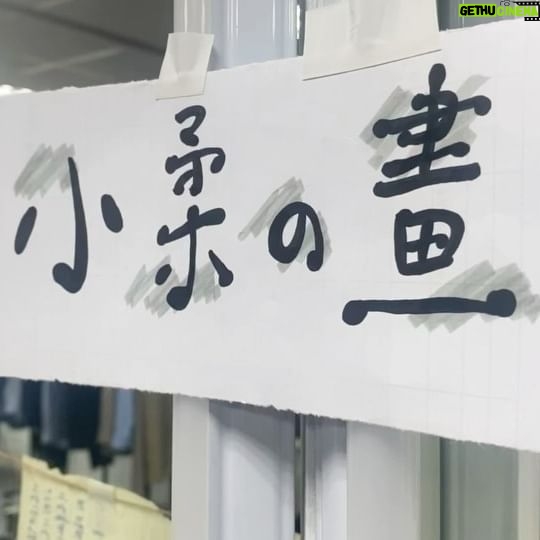 GETHUCINEMA
小柔の畫